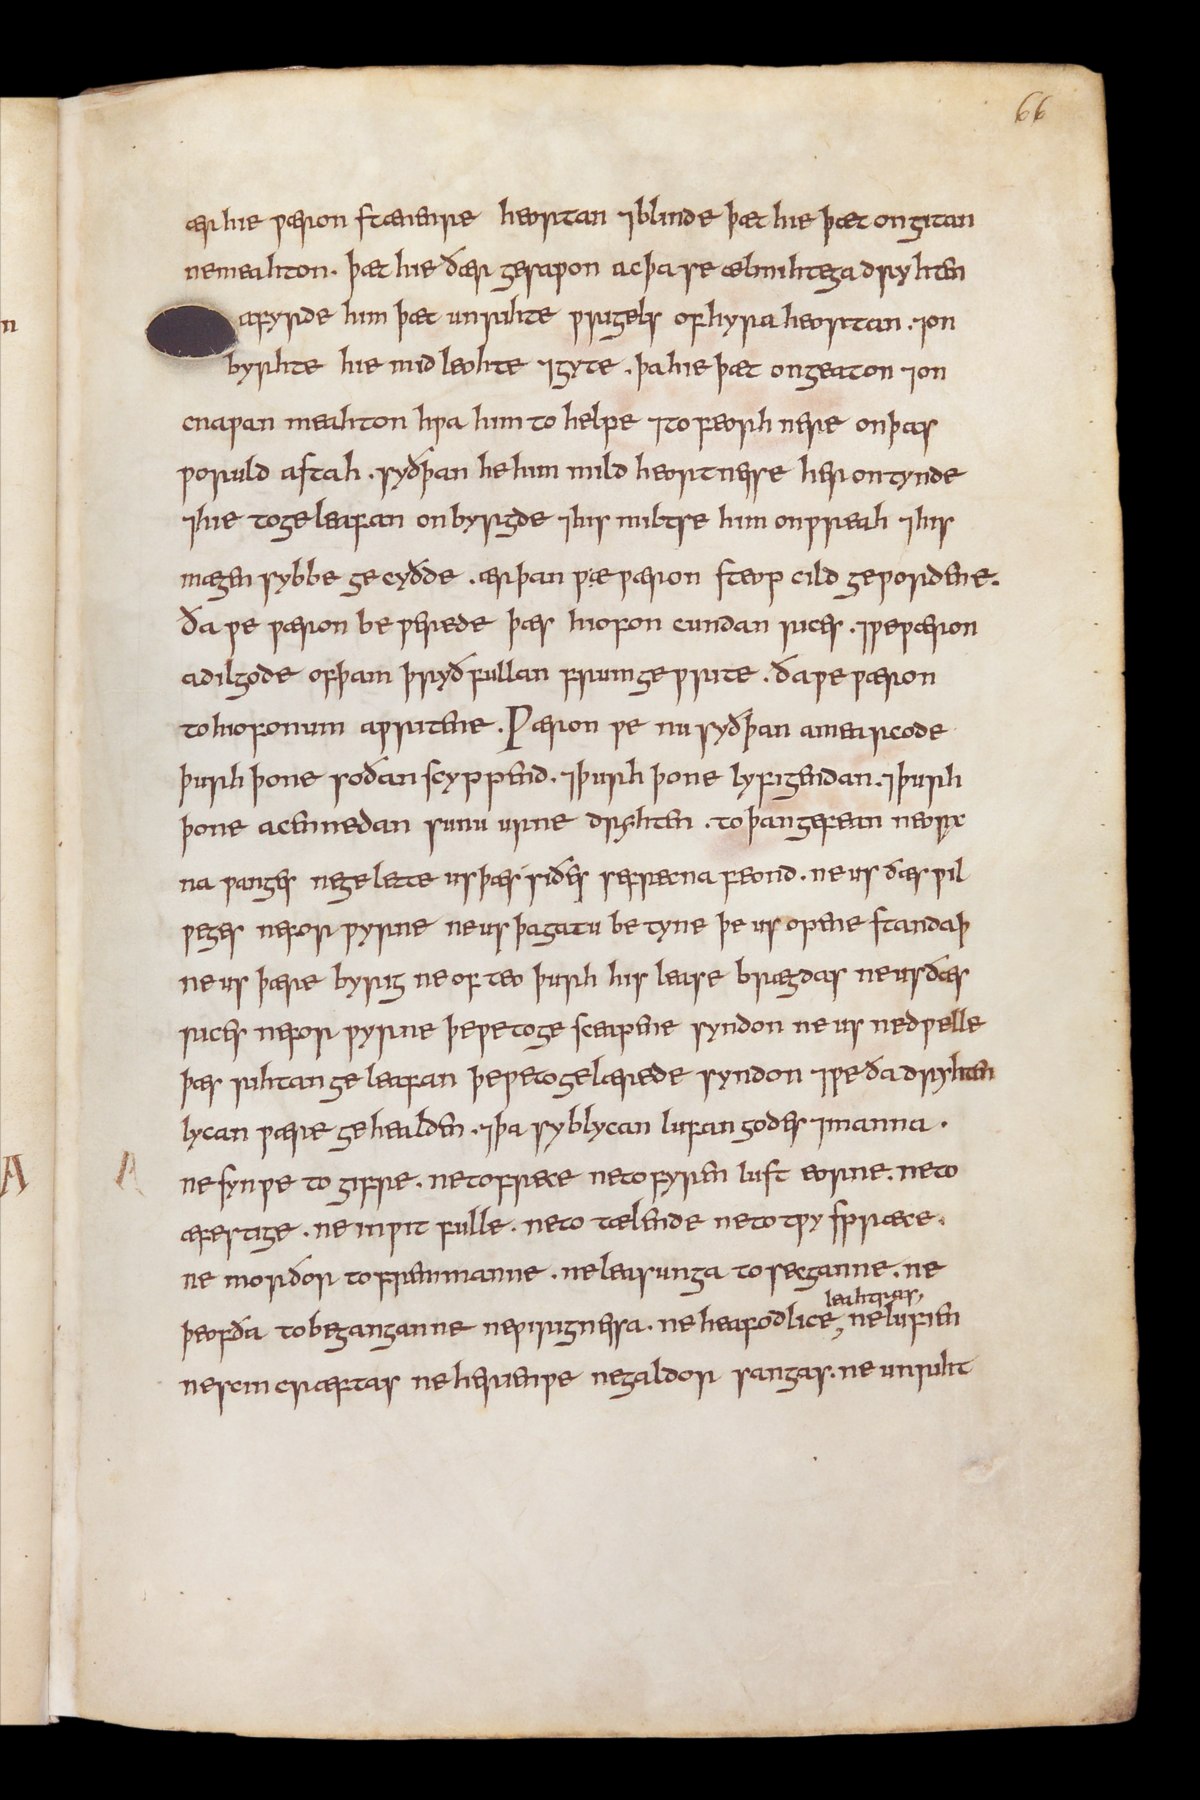 66
ær hie wæron stænenre heortan ⁊ blinde þæt hie þæt ongitan
ne meahton. þæt hie ðær gesawon ac þa se ælmihtega dryhten
afyrde him þæt unrihte wrigels of hyra heortan. ⁊ on
byrhte hie mid leohte ⁊gyte. þa hie þæt ongeaton ⁊ on
cnawan meahton hwa him to helpe ⁊ to feorh nere on þas
woruld astah. syðþan he him mildheortnesse her ontynde
⁊ hie to geleafan onbyrgde ⁊ his miltse him onwreah ⁊ his
mægen sybbe gecyðde. ær þan wæ wæron steop cild gewordene.
ða we wæron bewerede þæs hiofon cundan rices. ⁊ we wæron
adilgode of þam þryðfullan frumgewrite. ða we wæron
to hiofonum awritene. Wæron we nu syðþan amearcode
þurh þone soðan scyppend. ⁊ þurh þone lyfigendan. ⁊ þurh
þone acennedan sunu urne dryhten. to þan gefean neorx
na wanges ne gelette us þæs siðes se frecna feond. ne us ðæs wil
weges ne forwyrne ne us þa gatu betyne þe us opene standaþ
ne us þære byrig ne of teo þurh his lease brægdas ne us ðæs
rices ne forwyrne þe we to gesceapene syndon ne us nedwelle
þæs rihtan geleafan þe we to gelærede syndon ⁊ we ða dryhten
lycan wære gehealden. ⁊ þa syblycan lufan godes ⁊ manna.
A
A
ne syn we to gifre. ne to fræce ne to fyren lust eorne. ne to
æfestige. ne inwit fulle. ne to tælende ne to twy spræce.
ne morðor to fremmanne. ne leasunga to secganne. ne
þeofða to beganganne ne wirignessa. ne heafodlice
leahtras,
, ne lufien
ne scin cræftas ne herien we ne galdor sangas. ne unriht